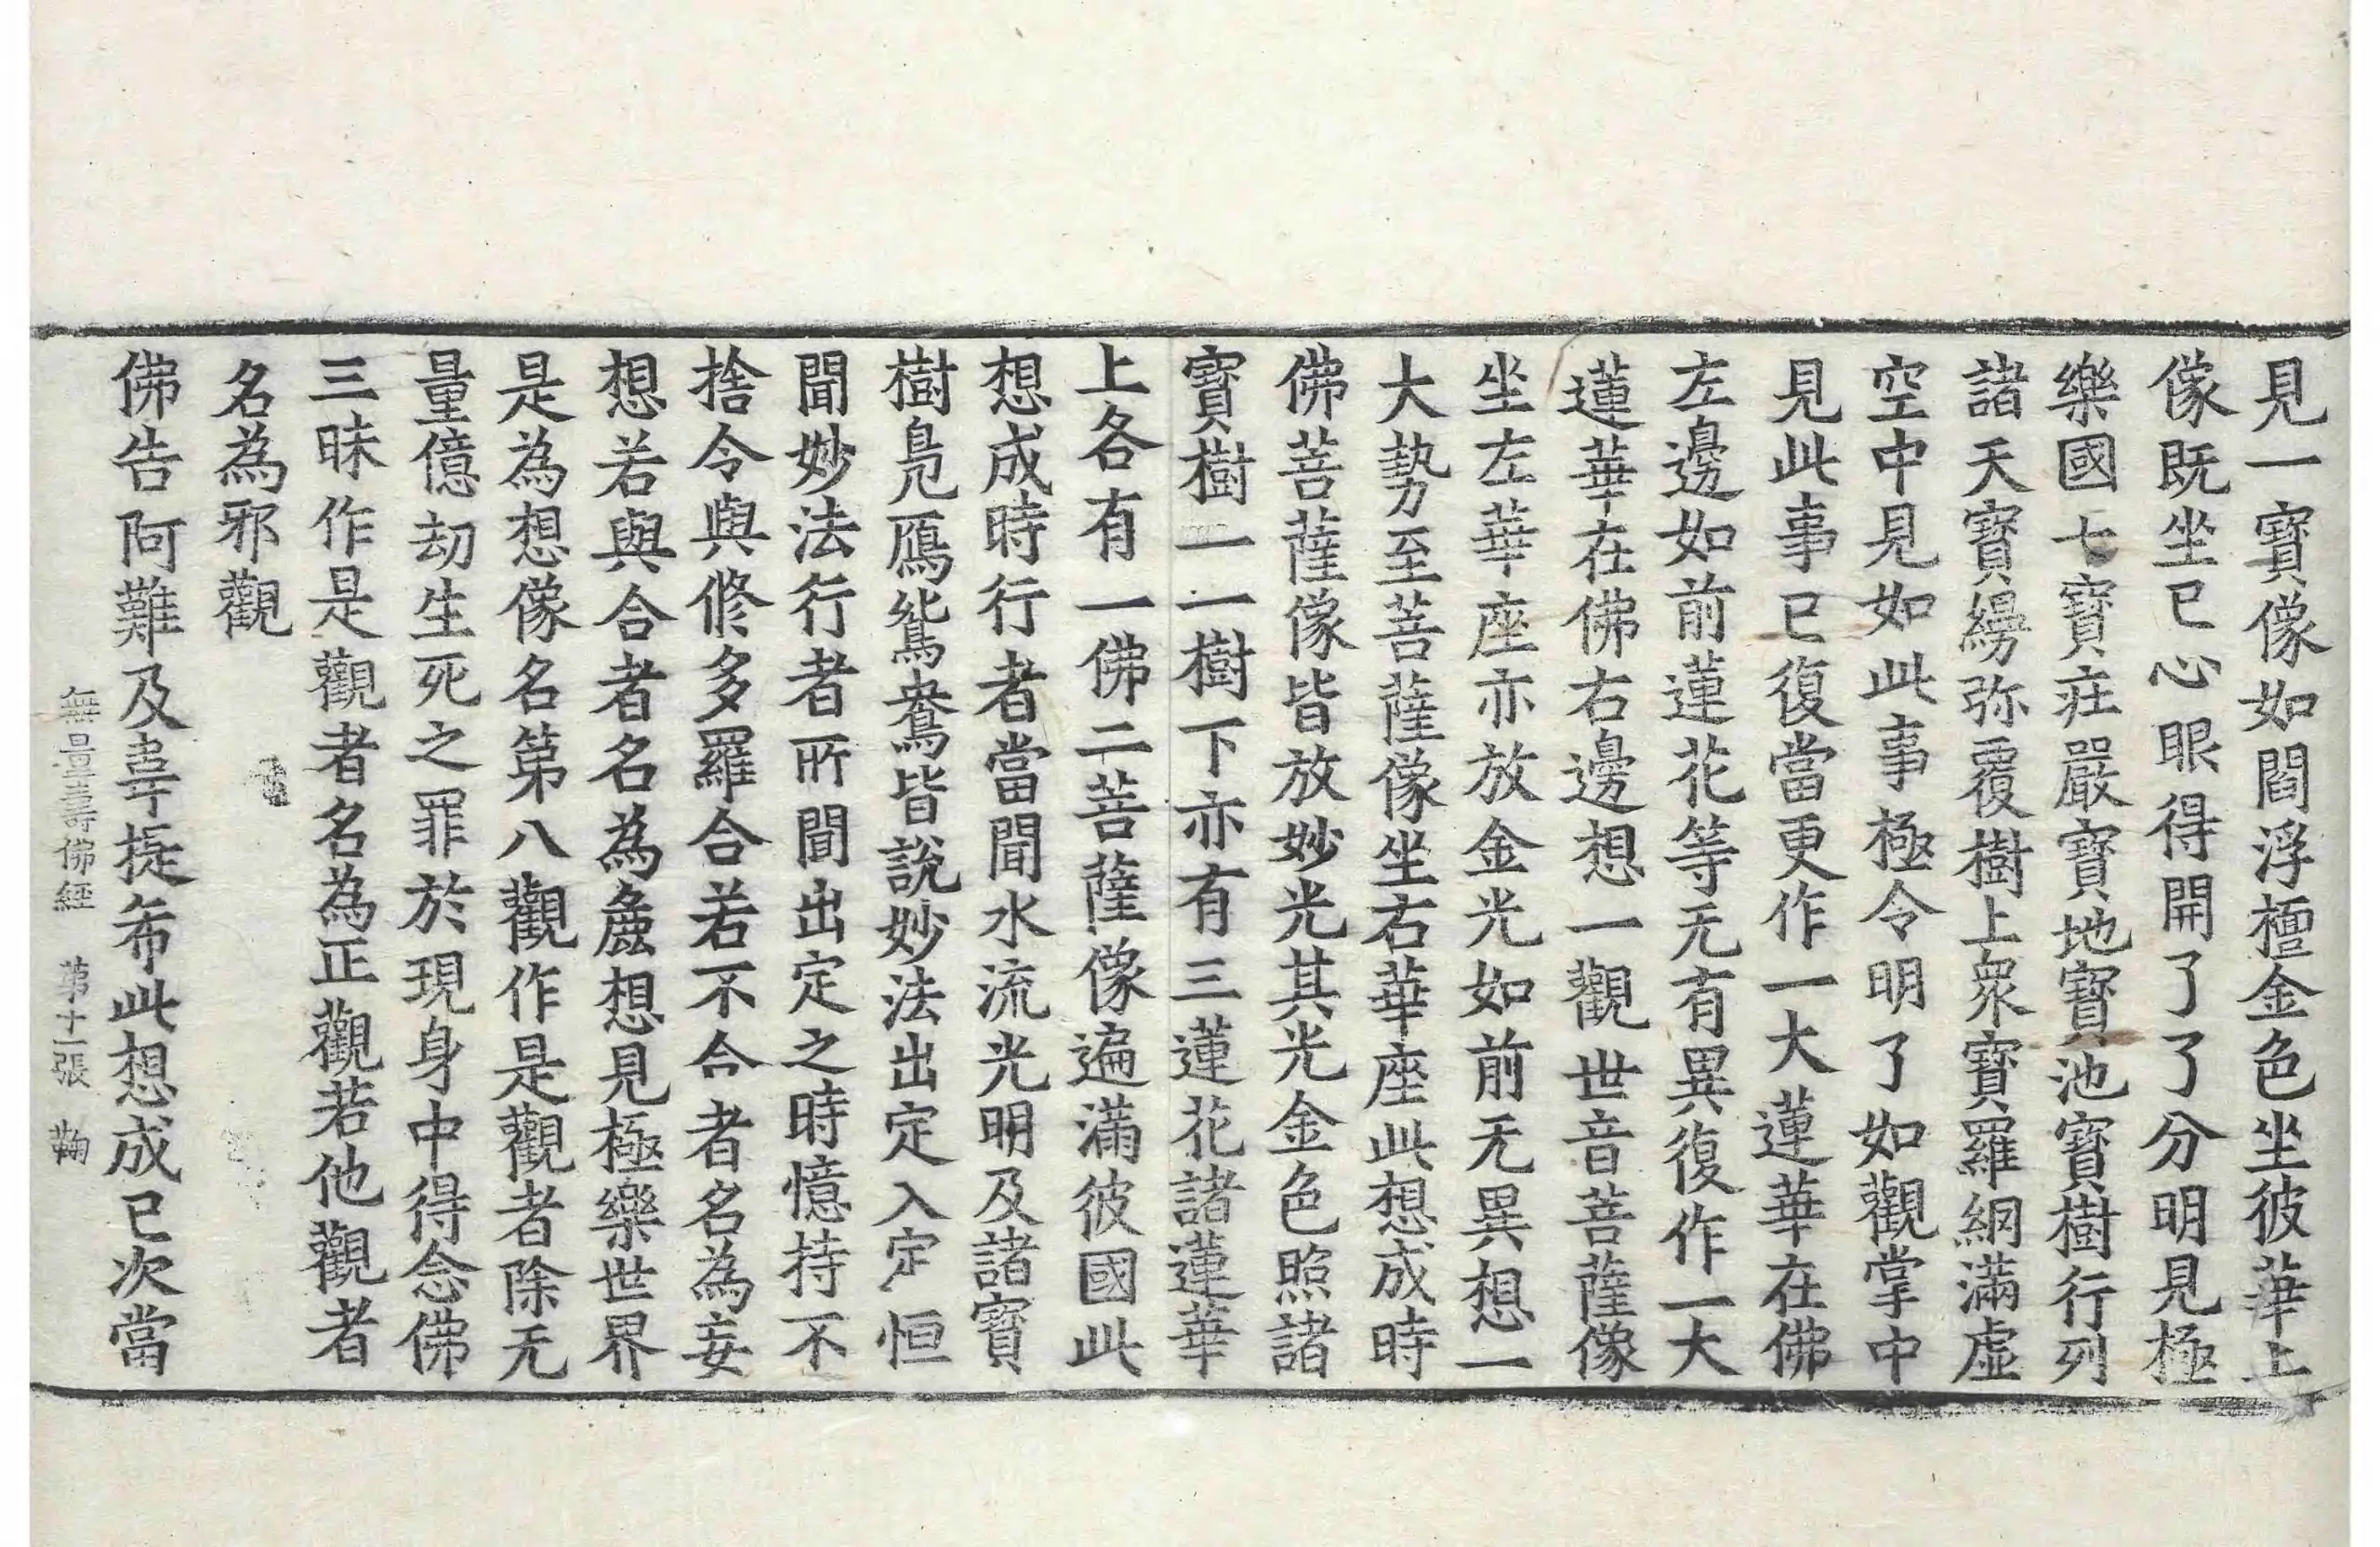 見一寶像如閻浮檀金色坐彼華上
像既坐已心眼得開了了分明見極
樂國七寶莊嚴寶地寶池寶樹行列
諸天寶縵弥覆樹上眾寶羅網滿虛
空中見如此事極令明了如觀掌中
見此事已復當更作一大蓮華在佛
左邊如前蓮花等无有異復作一大
蓮華在佛右邊想一觀世音菩薩像
坐左華座亦放金光如前无異想一
大勢至菩薩像坐右華座此想成時
佛菩薩像皆放妙光其光金色照諸
寶樹一一樹下亦有三蓮花諸蓮華
上各有一佛二菩薩像遍滿彼國此
想成時行者當聞水流光明及諸寶
樹鳧鴈鴛鴦皆說妙法出定入定恒
聞妙法行者所聞出定之時憶持不
捨令與修多羅合若不合者名為妄
想若與合者名為麁想見極樂世界
是為想像名第八觀作是觀者除无
量億劫生死之罪於現身中得念佛
三昧作是觀者名為正觀若他觀者
名為邪觀
佛告阿難及韋提希此想成已次當
無量壽佛經 第十一張 鞠